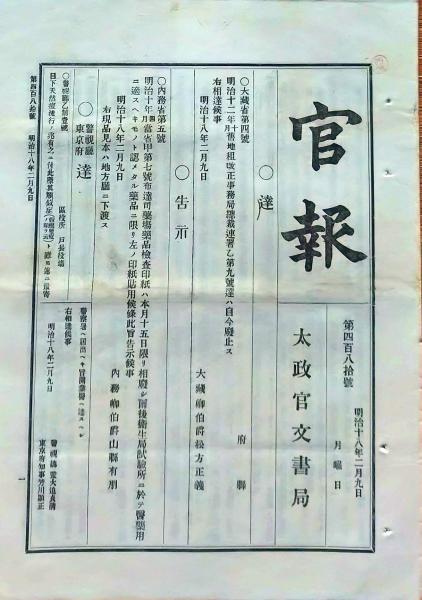 官報
第四百八拾號
明治十八年二月九日
月曜日
太政官文書局
○達
○大藏省第四號
府縣
明治十二年十月舊地租改正事務局總裁連署乙第九號達ハ自今廢止ス
右相達候事
明治十八年二月九日
大藏卿伯爵松方正義
○告示
○內務省第五號
明治十年四月當省甲第七號布達司藥場藥品檢查印紙ハ本月十五日限リ相廢シ前後衞生局試驗所ニ於テ醫藥用
ニ適スヘキモノト認メタル藥品ニ限リ左ノ印紙貼用候條此旨告示候事
右現品見本ハ地方廳ニ下渡ス
明治十八年二月九日
內務卿伯爵山縣有朋
○警視廳
東京府 達
○警視廳乙第壹號
區役所
戶長役場
目下天然痘流行ノ兆有之ニ付此際其類似症
ト
警察署ヘ屆出ヘキ旨開業醫ヘ達スヘシ
右相達候事
明治十八年二月九日
警視總監大迫貞淸
東京府知事芳川顯正
第四百八拾號
明治十八年二月九日
一